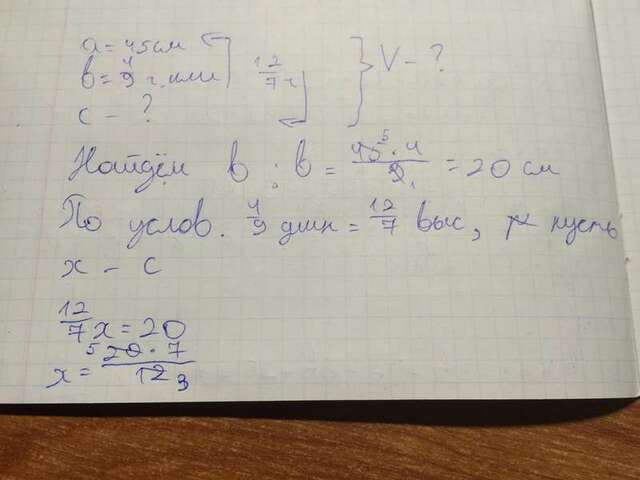 a = 45 см
b = 4/9 г. или 12/7 } V - ?
c - ?
Найдём b: b = 45⁵·4/9₁ = 20 см
По услов. 4/9 длин = 12/7 выс, пусть
x - c
12/7 x = 20
x = ⁵20·7/12₃